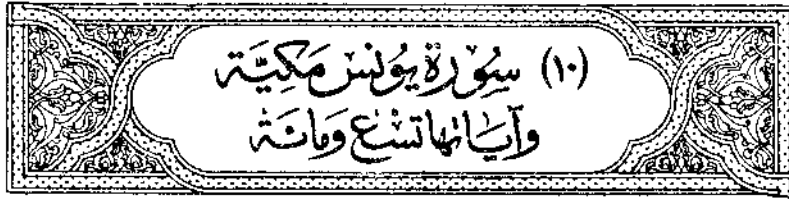 (١٠) سُورَة يُونسَ مَكِيَّة
وآيَاتها تسْع وَمائة